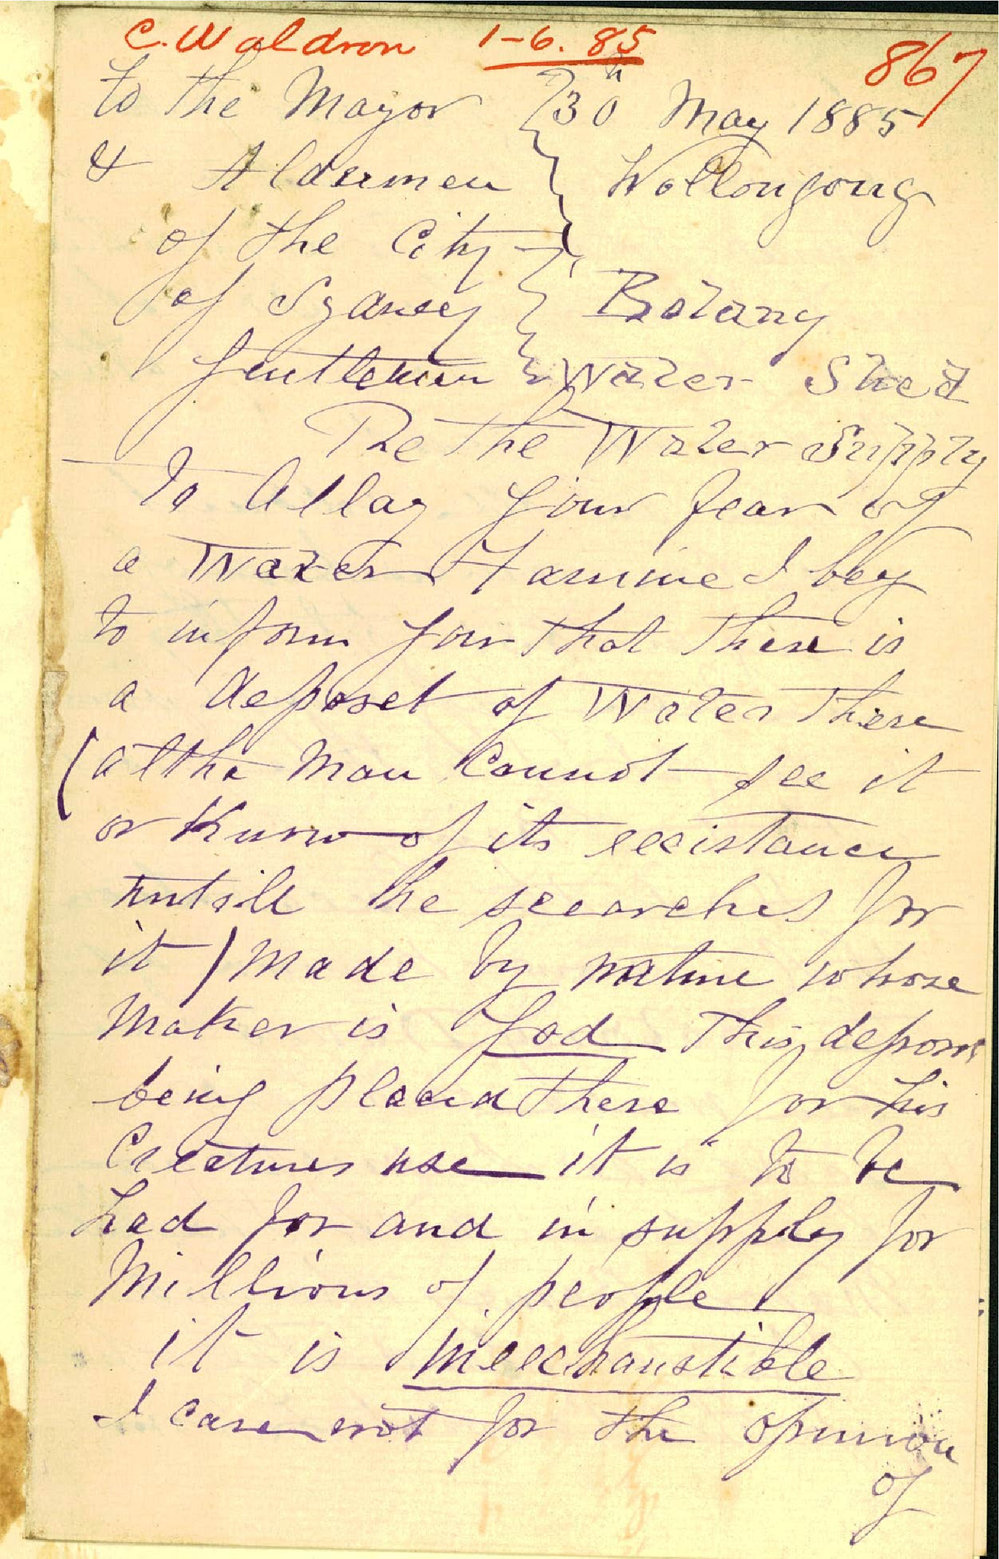 C. Waldron 1-6. 85
867
to the Mayor
& Aldermen
of the City
of Sydney
Gentlemen
30h May 1885
Wollongong
Botany
Water Shed
Re the Water Supply
To Allay your fear of
a Water Famine I beg
to inform you that there is
a deposet of Water there
(altho Man Cannot see it
or Know of its eccistance
untill he scearches for
it) Made by nature whose
Maker is God This deposet
being placed there for his
Creatures use it is to be
had for and in supply for
Millions of people
it is ineechaustible
I care not for the opinion
of